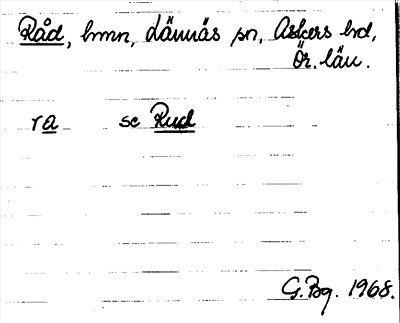 Råd, hmn, Lännäs sn, Askers hd,
Ör. län.
ra se Rud
G.Bg. 1968.